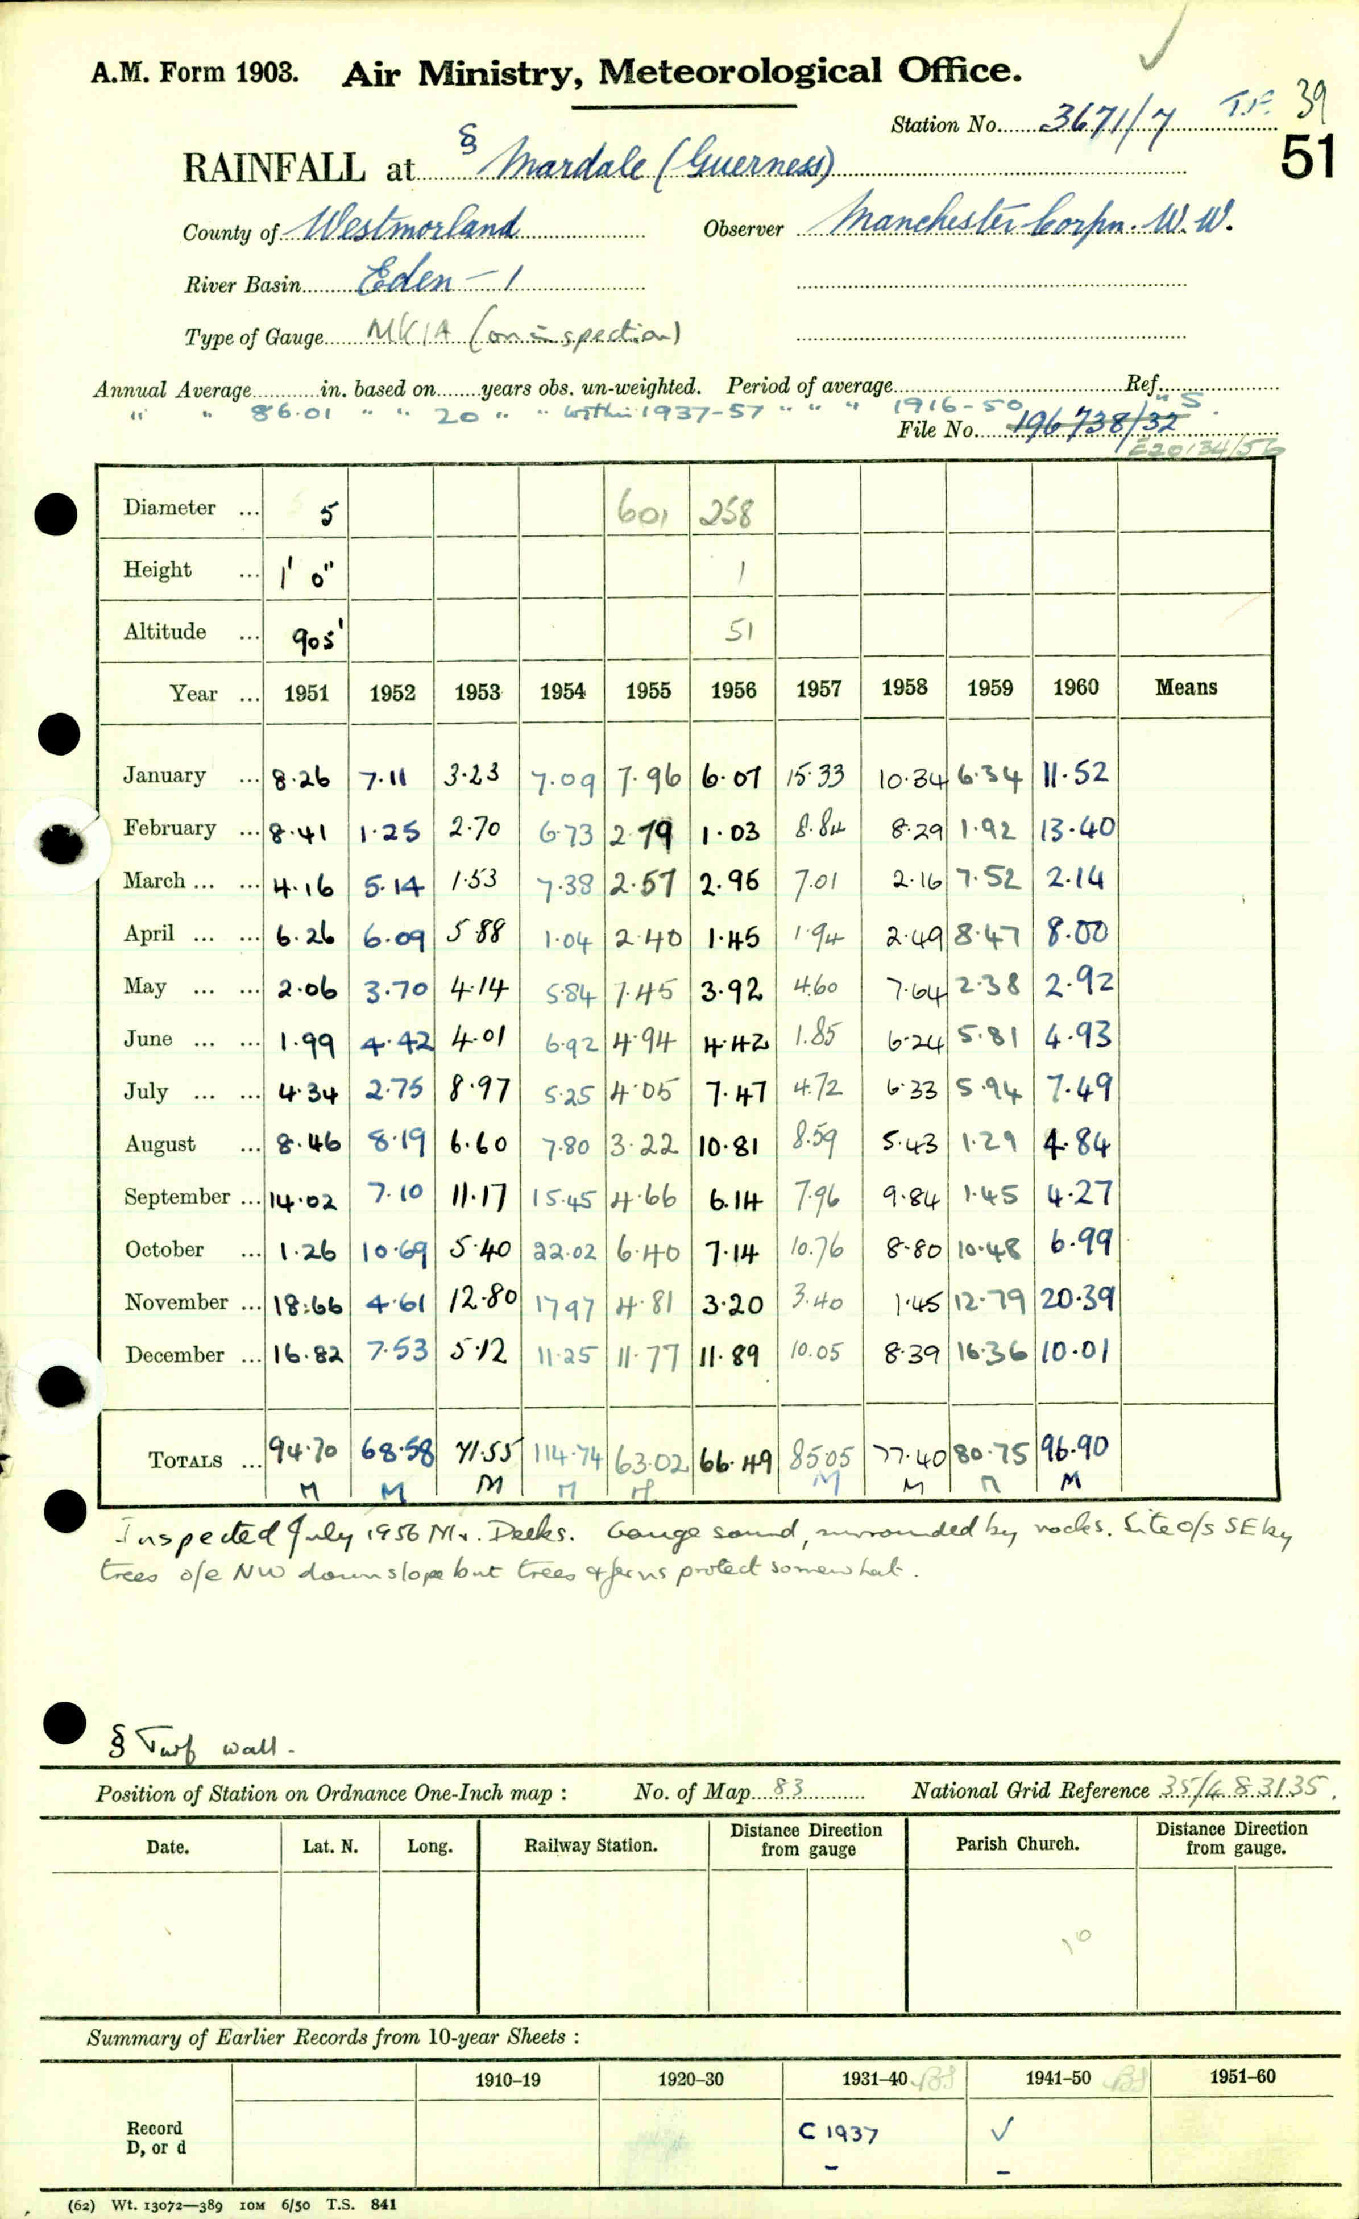 A.M. Form 1903. Air Ministry, Meteorological Office.
Station No. 3671/7 T.F. 39
51
RAINFALL at § Mardale (Guerness)
County of Westmorland Observer Manchester Corpn. W.W.
River Basin Eden - 1
Type of Gauge MK 1A (on inspection)
Annual Average in. based on years obs. un-weighted. Period of average Ref.
" " 86.01 " " 20 " " within 1937-57 " " " 1916-50 " S.
File No. 196738/32
E20134/56
Diameter ... 5 601 258
Height ... 1' 0" 1
Altitude ... 905' 51
Year ... 1951 1952 1953 1954 1955 1956 1957 1958 1959 1960 Means
January ... 8.26 7.11 3.23 7.09 7.96 6.07 15.33 10.34 6.34 11.52
February ... 8.41 1.25 2.70 6.73 2.79 1.03 8.84 8.29 1.92 13.40
March ... ... 4.16 5.14 1.53 7.38 2.57 2.95 7.01 2.16 7.52 2.14
April ... ... 6.26 6.09 5.88 1.04 2.40 1.45 1.94 2.49 8.47 8.00
May ... ... 2.06 3.70 4.14 5.84 7.45 3.92 4.60 7.64 2.38 2.92
June ... ... 1.99 4.42 4.01 6.92 4.94 4.42 1.85 6.24 5.81 4.93
July ... ... 4.34 2.75 8.97 5.25 4.05 7.47 4.72 6.33 5.94 7.49
August ... 8.46 8.19 6.60 7.80 3.22 10.81 8.59 5.43 1.29 4.84
September ... 14.02 7.10 11.17 15.45 4.66 6.14 7.96 9.84 1.45 4.27
October ... 1.26 10.69 5.40 22.02 6.40 7.14 10.76 8.80 10.48 6.99
November ... 18.66 4.61 12.80 17.97 4.81 3.20 3.40 1.45 12.79 20.39
December ... 16.82 7.53 5.12 11.25 11.77 11.89 10.05 8.39 16.36 10.01
TOTALS ... 94.70 68.58 71.55 114.74 63.02 66.49 85.05 77.40 80.75 96.90
M M M M M M M M M
Inspected July 1956 Mr. Deeks. Gauge sound, surrounded by rocks. Site o/s SE by
trees o/e NW downslope but trees & ferns protect somewhat.
§ Turf wall.
Position of Station on Ordnance One-Inch map : No. of Map 83 National Grid Reference 35/483135.
Date. Lat. N. Long. Railway Station. Distance from gauge Direction Parish Church. Distance from gauge. Direction
10
Summary of Earlier Records from 10-year Sheets :
1910–19 1920–30 1931–40 1941–50 1951–60
Record C 1937 ✓
D, or d – –
(62) Wt. 13072—389 10M 6/50 T.S. 841